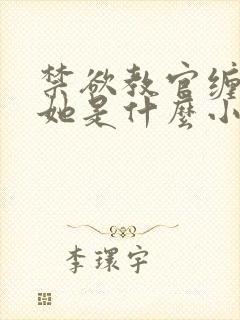 禁欲教官缠
她是什麼小
李環宇